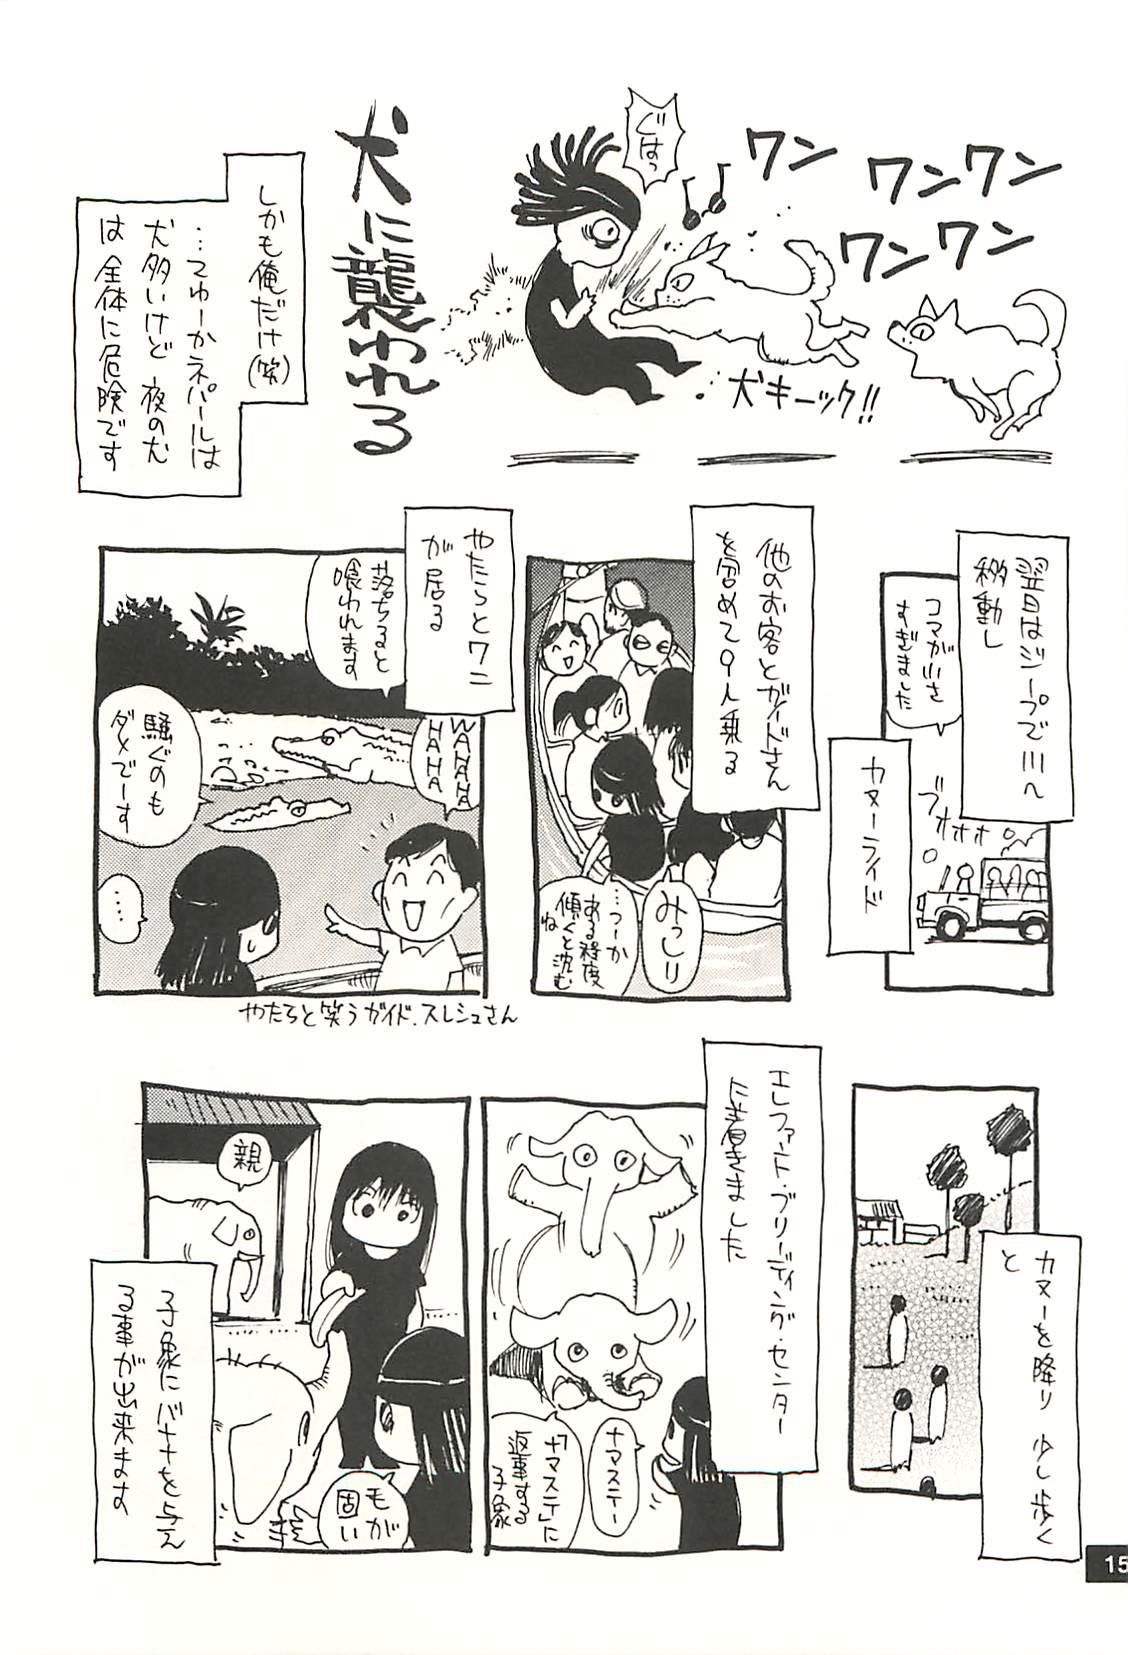 ワン
ワンワン
ワンワン
ぐはっ
犬キーック!!
犬に襲われる
しかも俺だけ(笑)
…てゆーかネパールは
犬多いけど 夜の犬
は全体に危険です
翌日はジープで川へ
移動し
コマが小さ
すぎました
ブオオオ
カヌーライド
他のお客とガイドさん
を含めて9人乗る
みっしり
…つーか
ある程度
傾くと沈む
ね
やたらとワニ
が居る
落ちると
喰われます
WAHAHA
HAHA
騒ぐのも
ダメでーす
…
やたらと笑うガイド.スレシュさん
カヌーを降り 少し歩く
と
エレファント・ブリーディング・センター
に着きました
ナマステー
「ナマステ」に
返事する
子象
親
子象にバナナを与え
る事が出来ます
毛が
固い
15